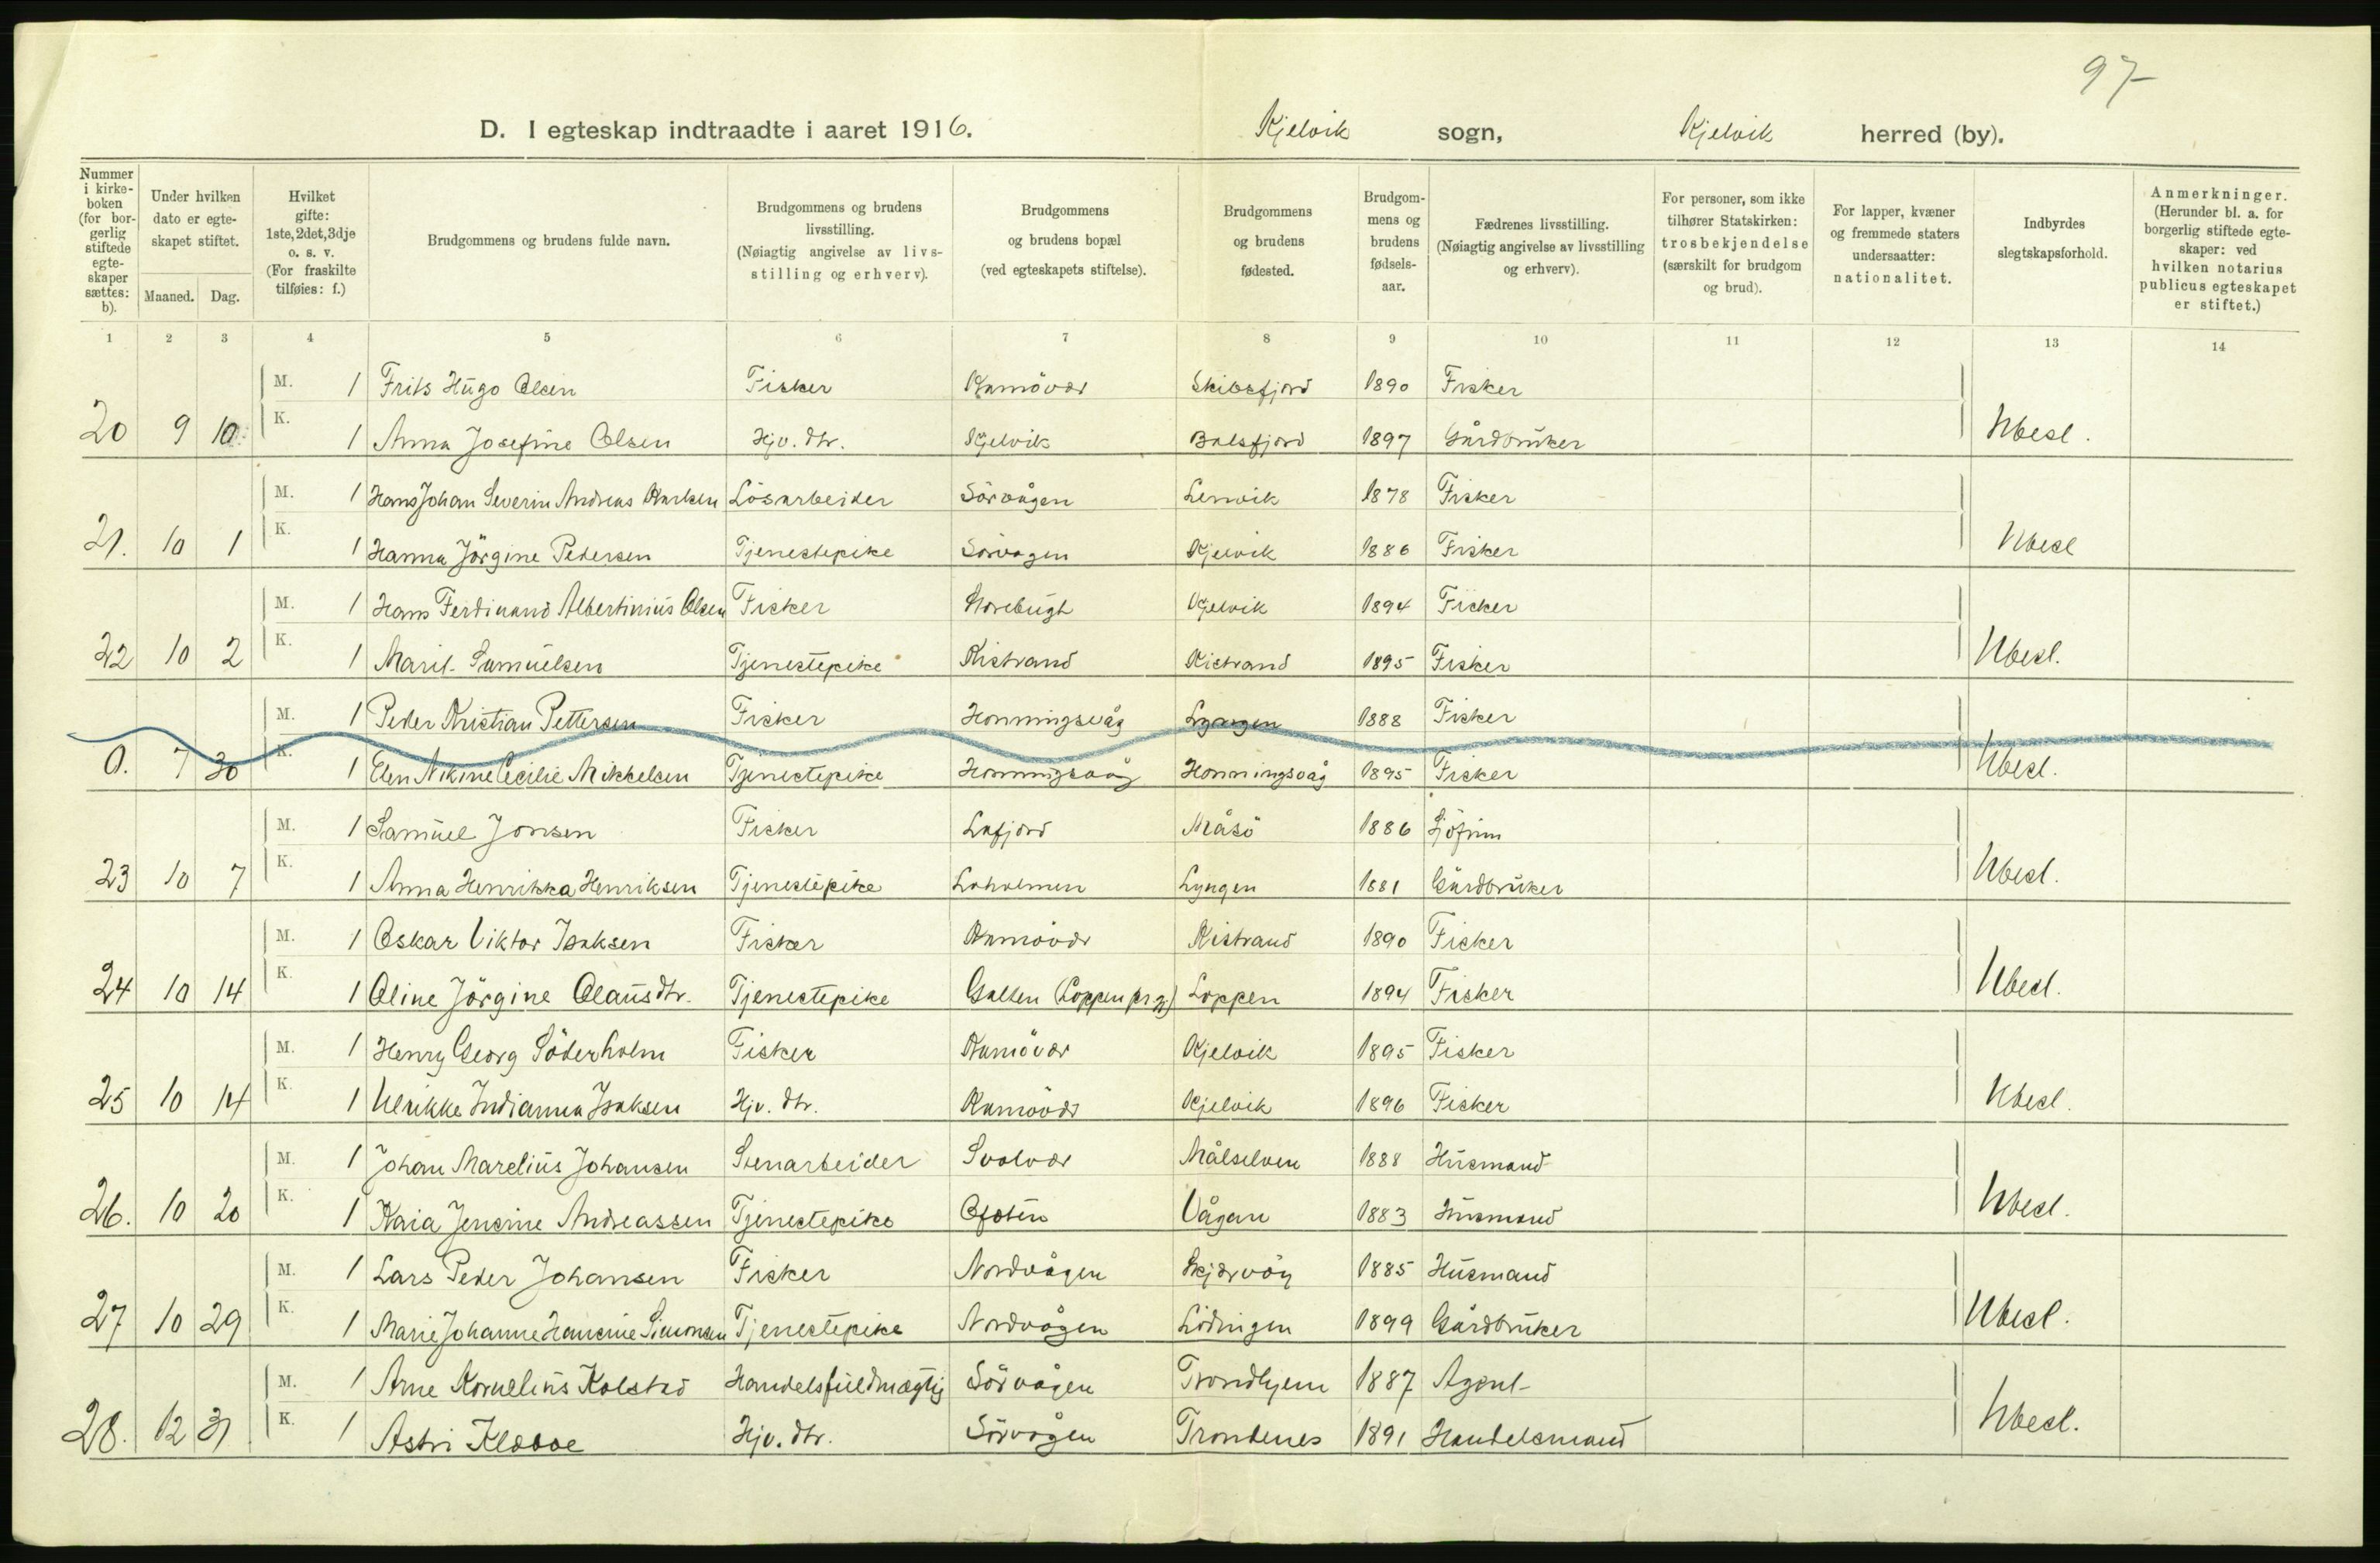 97
D. I egteskap indtraadte i aaret 1916. Kjelvik sogn, Kjelvik herred (by).
Nummer i kirke- boken (for bor- gerlig stiftede egte- skaper sættes: b). | Under hvilken dato er egte- skapet stiftet. Maaned. Dag. | Hvilket gifte: 1ste, 2det, 3dje o. s. v. (For fraskilte tilføies: f.) | Brudgommens og brudens fulde navn. | Brudgommens og brudens livsstilling. (Nøiagtig angivelse av livs- stilling og erhverv). | Brudgommens og brudens bopæl (ved egteskapets stiftelse). | Brudgommens og brudens fødested. | Brudgom- mens og brudens fødsels- aar. | Fædrenes livsstilling. (Nøiagtig angivelse av livsstilling og erhverv). | For personer, som ikke tilhører Statskirken: trosbekjendelse (særskilt for brudgom og brud). | For lapper, kvæner og fremmede staters undersaatter: nationalitet. | Indbyrdes slegtskapsforhold. | Anmerkninger. (Herunder bl. a. for borgerlig stiftede egte- skaper: ved hvilken notarius publicus egteskapet er stiftet.)
1 2 3 4 5 6 7 8 9 10 11 12 13 14
M. 1 Frits Hugo Olsen Fisker Kamövær Skibsfjord 1890 Fisker
20 9 10 K. 1 Anna Josefine Olsen Hjv. dtr. Kjelvik Balsfjord 1897 Gårdbruker Ubesl.
M. 1 Hans Johan Severin Andreas Lösarbeider Sörvågen Lenvik 1878 Fisker
21. 10 1 K. 1 Hanna Jörgine Pedersen Tjenestepike Sörvågen Kjelvik 1886 Fisker Ubesl
M. 1 Hans Ferdinand Albertinius Olsen Fisker Kjelvik 1894 Fisker
22 10 2 K. 1 Marit Samuelsen Tjenestepike Kistrand Kistrand 1895 Fisker Ubesl.
M. 1 Peder Kristian Pettersen Fisker Honningsvåg Lyngen 1888 Fisker
0. 7 30 K. 1 Elen Nikine Cecilie Mikkelsen Tjenestepike Honningsvåg Honningsvåg 1895 Fisker Ubesl.
M. 1 Samuel Jonsen Fisker Lafjord Måsö 1886 Sjöfinn
23 10 7 K. 1 Anna Henrikka Henriksen Tjenestepike Loholmen Lyngen 1881 Gårdbruker Ubesl.
M. 1 Oskar Viktor Isaksen Fisker Kamövær Kistrand 1890 Fisker
24 10 14 K. 1 Oline Jörgine Olausdtr. Tjenestepike Galten (Loppen prgj) Loppen 1894 Fisker Ubesl.
M. 1 Henry Georg Söderholm Fisker Kamövær Kjelvik 1895 Fisker
25 10 14 K. 1 Ulrikke Indianna Isaksen Hjv. dtr. Kamövær Kjelvik 1896 Fisker Ubesl.
M. 1 Johan Marelius Johansen Stenarbeider Svolvær Målselven 1888 Husmand
26. 10 20 K. 1 Kaia Jensine Andreassen Tjenestepike Ofoten Vågan 1883 Husmand Ubesl.
M. 1 Lars Peder Johansen Fisker Nordvågen Skjærvöy 1885 Husmand
27 10 29 K. 1 Marie Johanne Hansine Simonsen Tjenestepike Nordvågen Lödingen 1899 Gårdbruker Ubesl.
M. 1 Arne Kornelius Kolstad Handelsfuldmægtig Sörvågen Trondhjem 1887 Agent
28. 12 31 K. 1 Astri Hjv. dtr. Sörvågen Trondenes 1891 Handelsmand Ubesl.